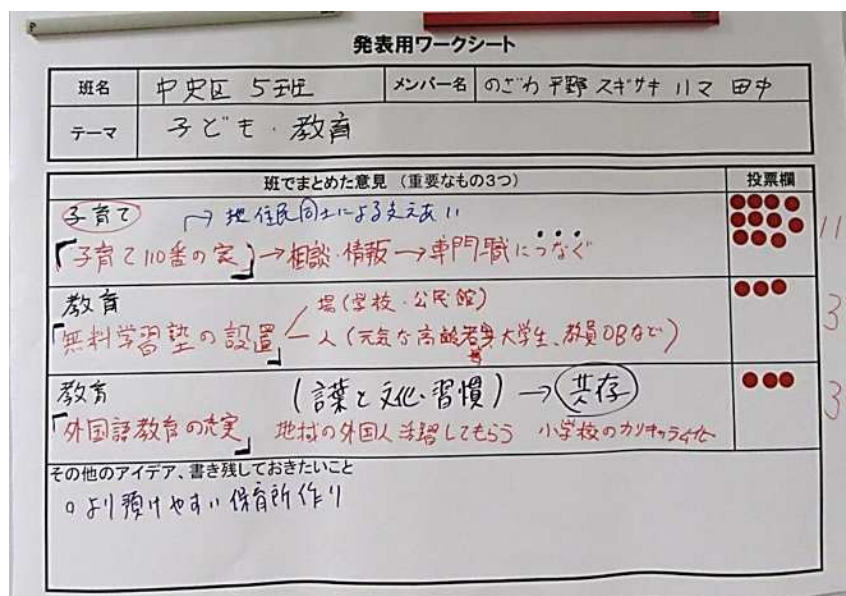 発表用ワークシート
班名 中央区 5班 メンバー名 のざわ 平野 スギサキ ハマ 田中
テーマ 子ども・教育
班でまとめた意見 (重要なもの3つ) 投票欄
子育て → 地住民同士による支えあい
「子育て110番の家」→相談・情報→専門職につなぐ 11
教育 場(学校・公民館)
「無料学習塾の設置」 人(元気な高齢者 大学生、教員OBなど) 3
教育 (言葉と文化・習慣)→共存
「外国語教育の充実」 地域の外国人 してもらう 小学校のカリキュラム化 3
その他のアイデア、書き残しておきたいこと
○より預けやすい保育所作り